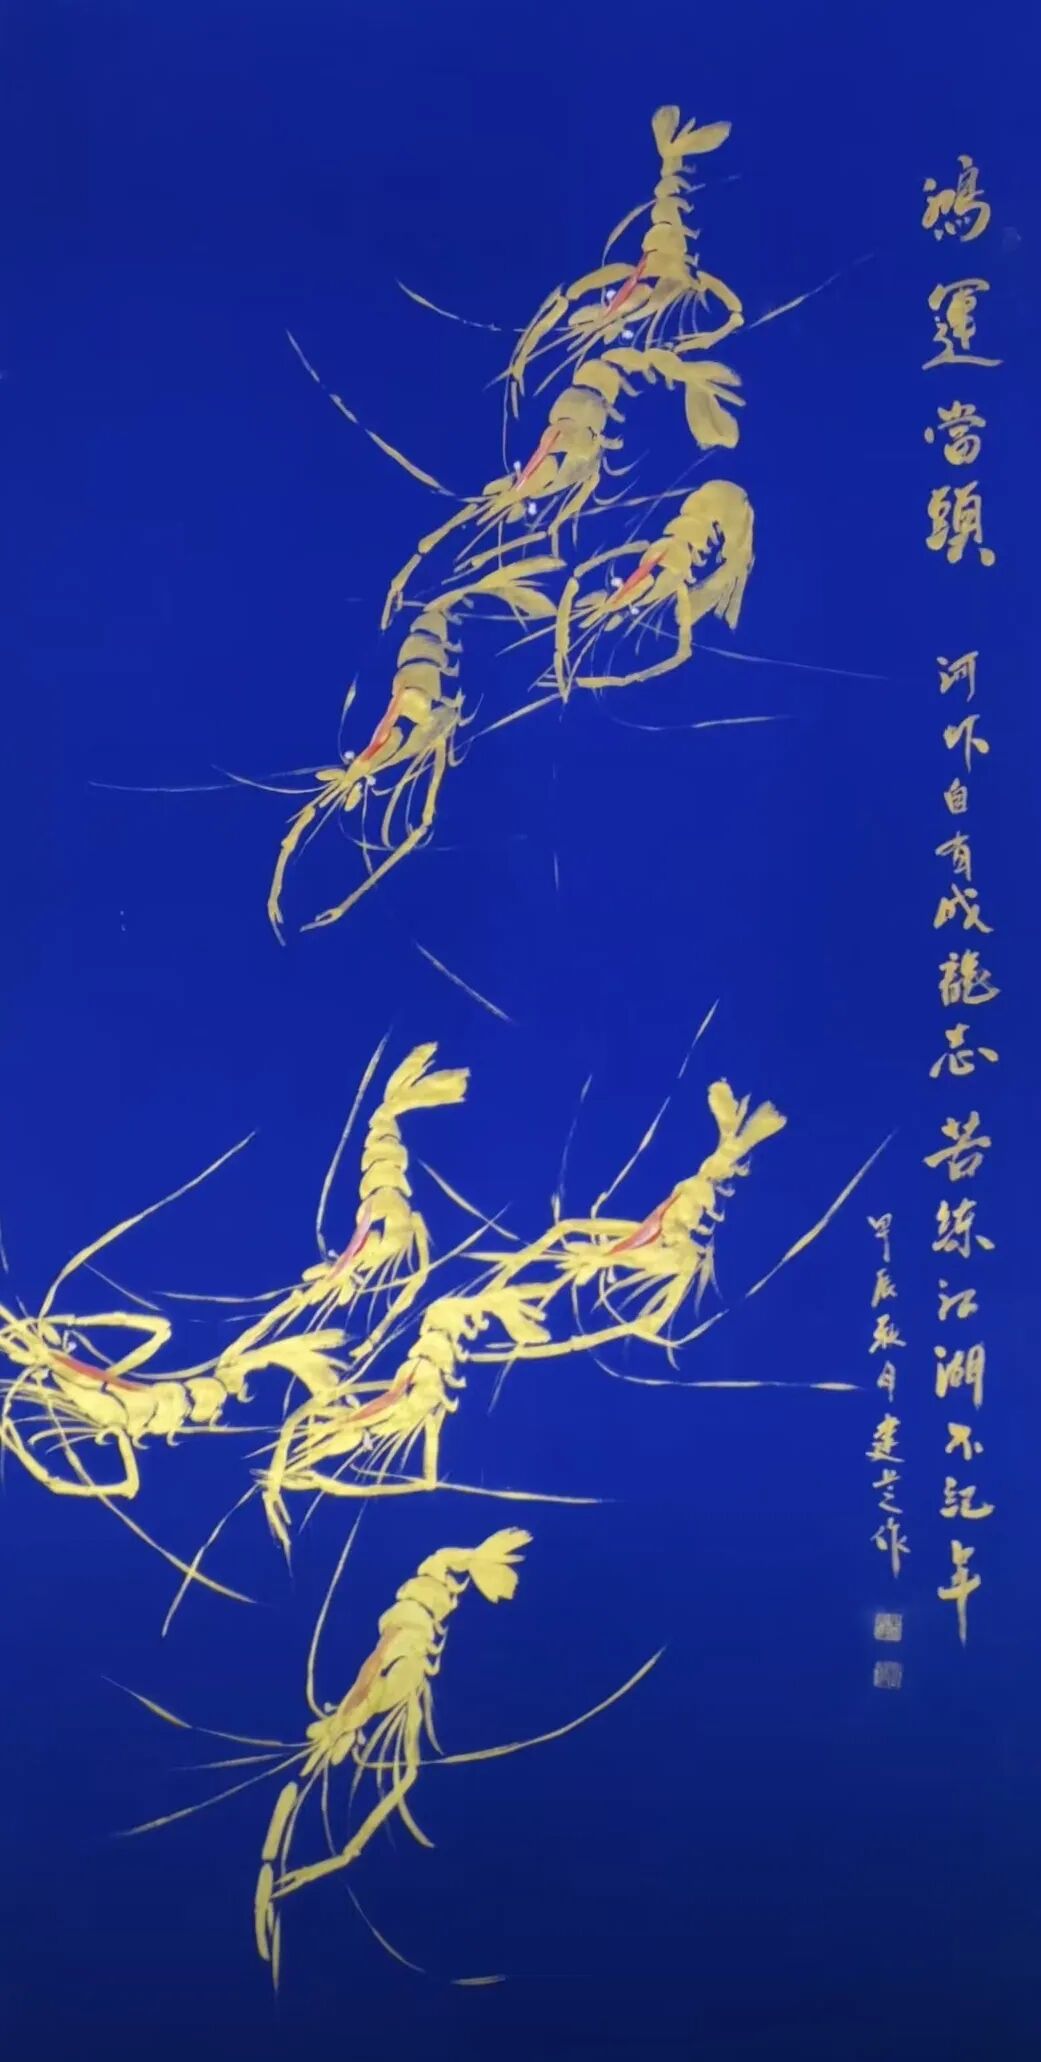 鴻運當頭 河虾自有成龍志 苦練江湖不記年
甲辰秋月建芝作